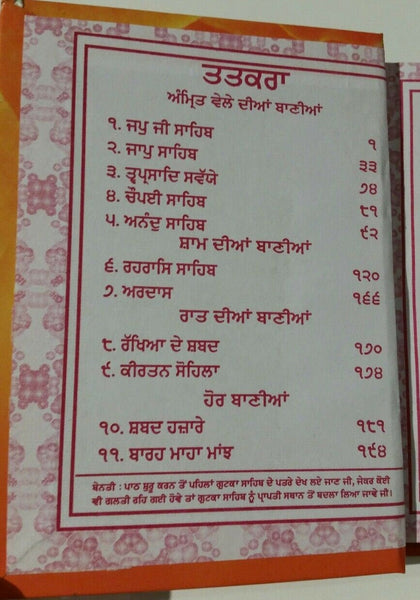 ਤਤਕਰਾ
ਅੰਮ੍ਰਿਤ ਵੇਲੇ ਦੀਆਂ ਬਾਣੀਆਂ
੧. ਜਪੁ ਜੀ ਸਾਹਿਬ ੧
੨. ਜਾਪੁ ਸਾਹਿਬ ੩੩
੩. ਤ੍ਵਪ੍ਰਸਾਦਿ ਸਵੱਯੇ ੭੪
੪. ਚੌਪਈ ਸਾਹਿਬ ੮੧
੫. ਅਨੰਦੁ ਸਾਹਿਬ ੯੨
ਸ਼ਾਮ ਦੀਆਂ ਬਾਣੀਆਂ
੬. ਰਹਰਾਸਿ ਸਾਹਿਬ ੧੨੦
੭. ਅਰਦਾਸ ੧੬੬
ਰਾਤ ਦੀਆਂ ਬਾਣੀਆਂ
੮. ਰੱਖਿਆ ਦੇ ਸ਼ਬਦ ੧੭੦
੯. ਕੀਰਤਨ ਸੋਹਿਲਾ ੧੭੪
ਹੋਰ ਬਾਣੀਆਂ
੧੦. ਸ਼ਬਦ ਹਜ਼ਾਰੇ ੧੮੧
੧੧. ਬਾਰਹ ਮਾਹਾ ਮਾਂਝ ੧੯੪
ਬੇਨਤੀ : ਪਾਠ ਸ਼ੁਰੂ ਕਰਨ ਤੋਂ ਪਹਿਲਾਂ ਗੁਟਕਾ ਸਾਹਿਬ ਦੇ ਪਤਰੇ ਦੇਖ ਲਏ ਜਾਣ ਜੀ, ਜੇਕਰ ਕੋਈ
ਵੀ ਗਲਤੀ ਰਹਿ ਗਈ ਹੋਵੇ ਤਾਂ ਗੁਟਕਾ ਸਾਹਿਬ ਨੂੰ ਪ੍ਰਾਪਤੀ ਸਥਾਨ ਤੋਂ ਬਦਲਾ ਲਿਆ ਜਾਵੇ ਜੀ।